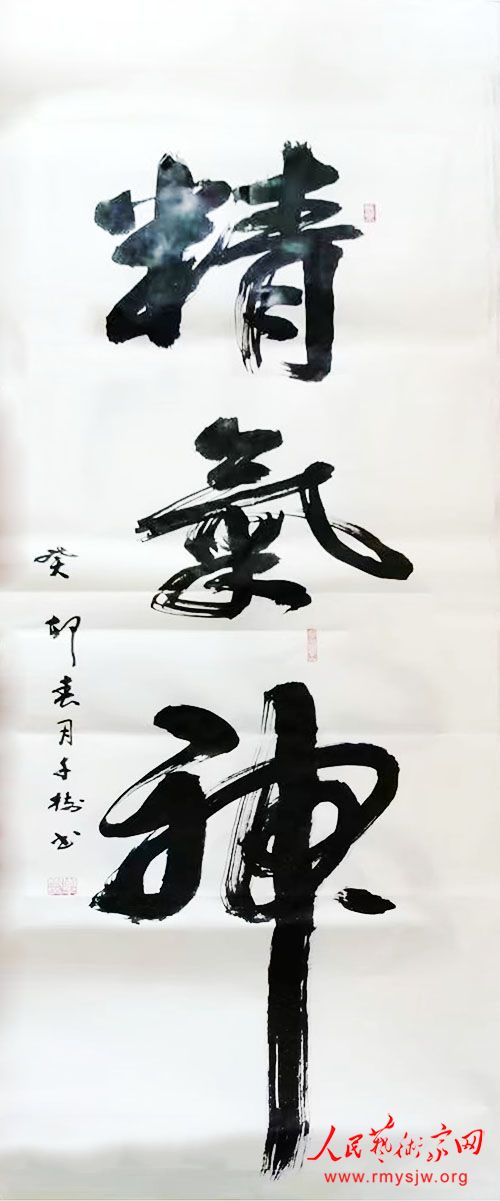 精氣神
癸卯春月千樹書
人民藝術家网
www.rmysjw.org